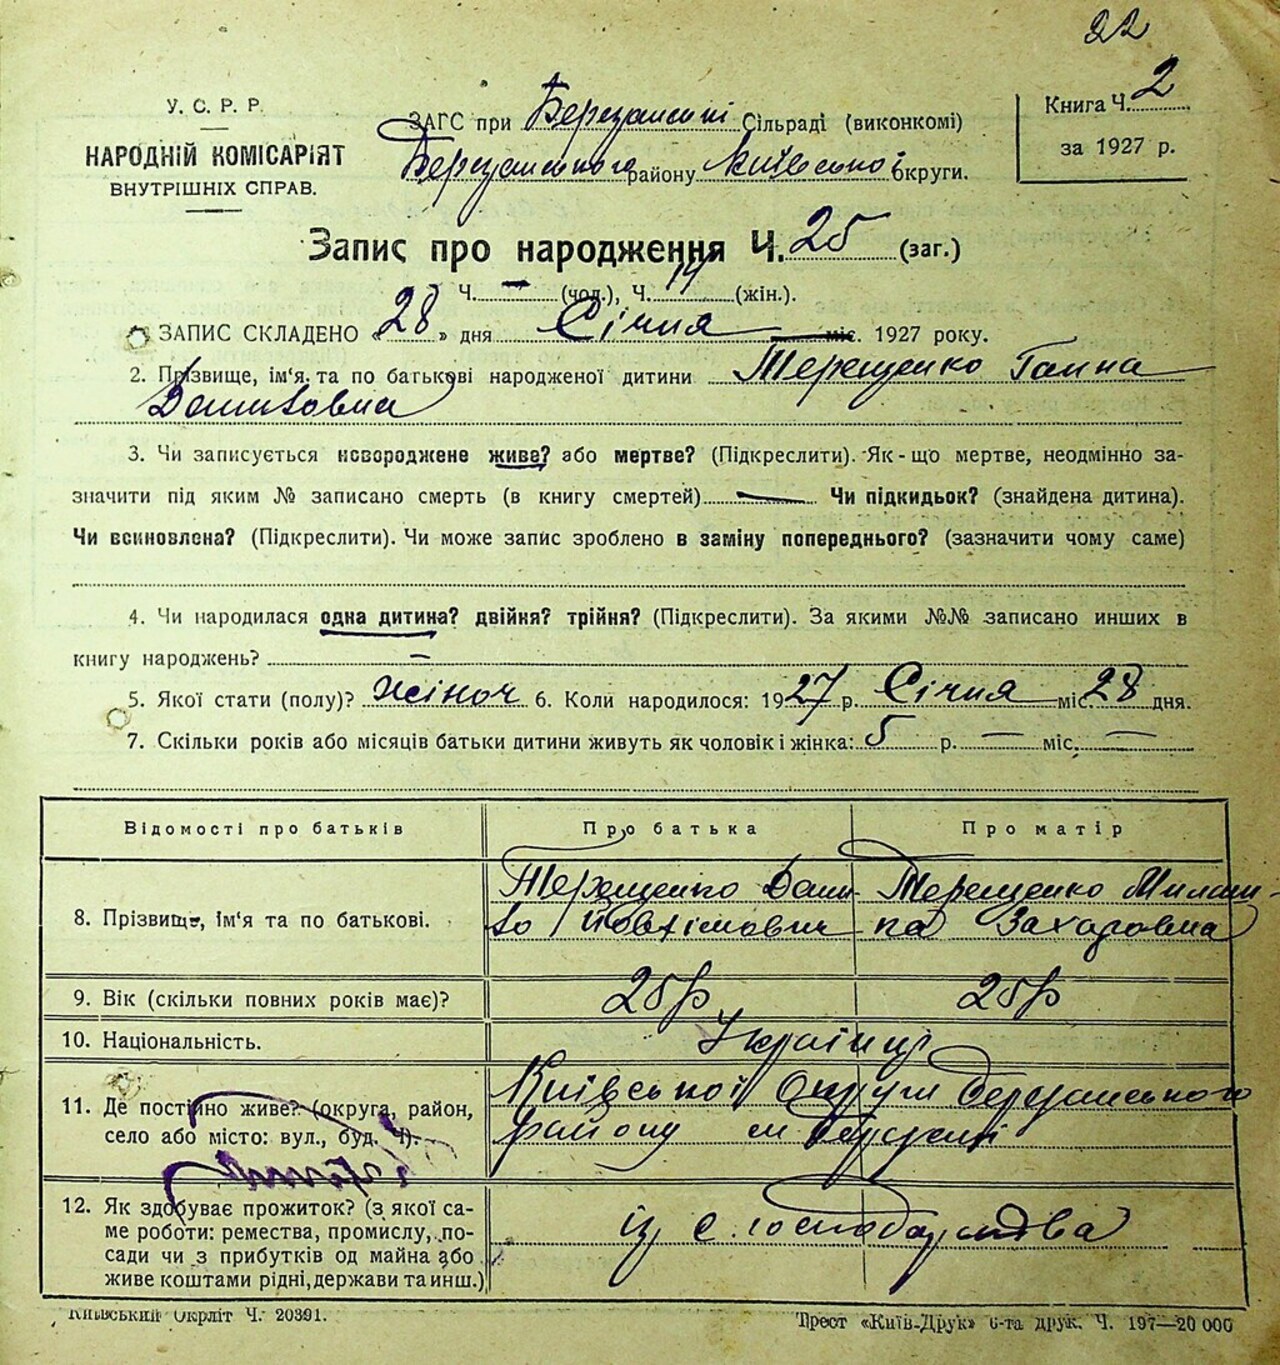 22
У. С. Р. Р.
НАРОДНІЙ КОМІСАРІЯТ
ВНУТРІШНІХ СПРАВ.
ЗАГС при Березанській Сільраді (виконкомі)
Березанського району Київської Округи.
Книга Ч. 2
за 1927 р.
Запис про народження Ч. 25 (заг.)
Ч. — (чол.), Ч. 14 (жін.).
ЗАПИС СКЛАДЕНО «28» дня Січня міс. 1927 року.
2. Прізвище, ім'я та по батькові народженої дитини Терещенко Ганна
Даниловна
3. Чи записується новороджене живе? або мертве? (Підкреслити). Як-що мертве, неодмінно за-
значити під яким № записано смерть (в книгу смертей) — Чи підкидьок? (знайдена дитина).
Чи всиновлена? (Підкреслити). Чи може запис зроблено в заміну попереднього? (зазначити чому саме)
4. Чи народилася одна дитина? двійня? трійня? (Підкреслити). За якими №№ записано инших в
книгу народжень? —
5. Якої стати (полу)? жіноч 6. Коли народилося: 1927 р. Січня міс. 28 дня.
7. Скільки років або місяців батьки дитини живуть як чоловік і жінка: 5 р. — міс. —
Відомості про батьків Про батька Про матір
8. Прізвище, ім'я та по батькові. Терещенко Дани- Терещенко
ло Захаровна
9. Вік (скільки повних років має)? 25 р 25 р
10. Національність. Українці
11. Де постійно живе? (округа, район, Київської Округи Березанського
село або місто: вул., буд. Ч). району м Березані
12. Як здобуває прожиток? (з якої са-
ме роботи: ремества, промислу, по- із с. господарства
сади чи з прибутків од майна або
живе коштами рідні, держави та инш.)
Київський Окрліт Ч. 20391.
Трест «Київ-Друк» 6-та друк. Ч. 197—20 000